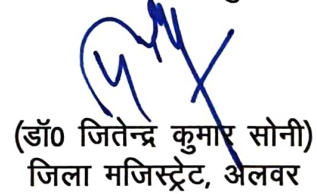 (डॉ0 जितेन्द्र कुमार सोनी)
जिला मजिस्ट्रेट, अलवर